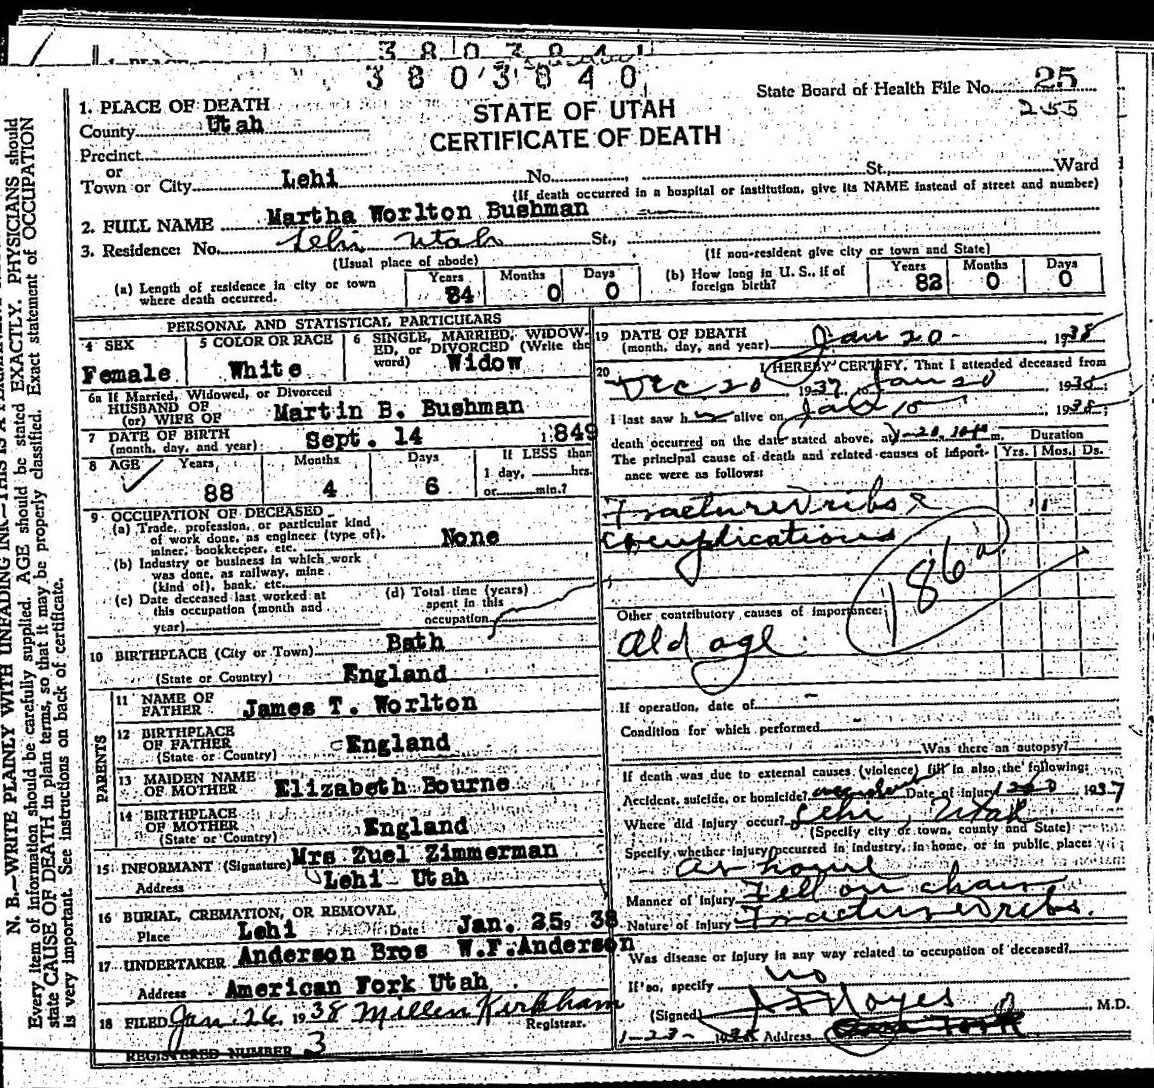 3803841
3803840
State Board of Health File No. 25
255
STATE OF UTAH
CERTIFICATE OF DEATH
1. PLACE OF DEATH
County Utah
Precinct
or
Town or City Lehi No. St., Ward
(If death occurred in a hospital or institution, give its NAME instead of street and number)
2. FULL NAME Martha Worlton Bushman
3. Residence: No. Lehi Utah St.,
(Usual place of abode) (If non-resident give city or town and State)
(a) Length of residence in city or town where death occurred. Years 84 Months 0 Days 0
(b) How long in U. S., if of foreign birth? Years 82 Months 0 Days 0
PERSONAL AND STATISTICAL PARTICULARS
4 SEX Female
5 COLOR OR RACE White
6 SINGLE, MARRIED, WIDOWED, or DIVORCED (Write the word) Widow
6a If Married, Widowed, or Divorced
HUSBAND OF
(or) WIFE OF Martin B. Bushman
7 DATE OF BIRTH
(month, day, and year) Sept. 14 1849
8 AGE Years 88 Months 4 Days 6
If LESS than
1 day, hrs.
or min.?
9 OCCUPATION OF DECEASED
(a) Trade, profession, or particular kind
of work done, as engineer (type of),
miner, bookkeeper, etc. None
(b) Industry or business in which work
was done, as railway, mine
(kind of), bank, etc.
(c) Date deceased last worked at
this occupation (month and
year)
(d) Total time (years)
spent in this
occupation
10 BIRTHPLACE (City or Town) Bath
(State or Country) England
PARENTS
11 NAME OF
FATHER James T. Worlton
12 BIRTHPLACE
OF FATHER England
(State or Country)
13 MAIDEN NAME
OF MOTHER Elizabeth Bourne
14 BIRTHPLACE
OF MOTHER England
(State or Country)
15 INFORMANT (Signature) Mrs Zuel Zimmerman
Address Lehi Utah
16 BURIAL, CREMATION, OR REMOVAL
Place Lehi Date Jan. 25, 38
17 UNDERTAKER Anderson Bros W.F. Anderson
Address American Fork Utah
18 FILED Jan. 26, 1938 Millen Kirkham
Registrar.
REGISTERED NUMBER 3
19 DATE OF DEATH
(month, day, and year) Jan 20 1938
20 I HEREBY CERTIFY, That I attended deceased from
Dec 20 1937, to Jan 20 1938;
I last saw h alive on Jan 15 1938;
death occurred on the date stated above, at 1-20, m.
Duration
The principal cause of death and related causes of importance were as follows: Yrs. Mos. Ds.
Fractured ribs &
complications
186a
Other contributory causes of importance:
Old age
If operation, date of
Condition for which performed
Was there an autopsy?
If death was due to external causes (violence) fill in also the following:
Accident, suicide, or homicide? Date of injury 1937
Where did injury occur? Lehi, Utah
(Specify city or town, county and State)
Specify whether injury occurred in industry, in home, or in public place:
At home
Manner of Injury Fell on chair
Nature of Injury Fractured ribs.
Was disease or injury in any way related to occupation of deceased?
If so, specify no
(Signed) Noyes M.D.
1-23-1938 Address
N. B.—WRITE PLAINLY WITH UNFADING INK—THIS IS A
Every item of information should be carefully supplied. AGE should be stated EXACTLY. PHYSICIANS should
state CAUSE OF DEATH in plain terms, so that it may be properly classified. Exact statement of OCCUPATION
is very important. See instructions on back of certificate.